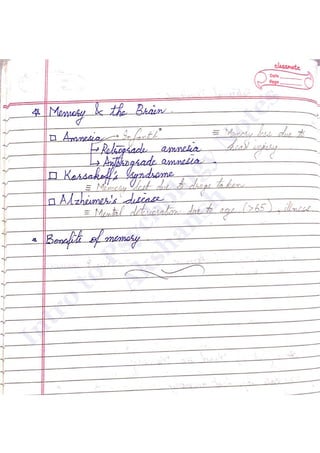 classmate
Date
Page
* Memory & the Brain.
□ Amnesia → Infantile ≡ Memory loss due to
head injury
→ Retrograde amnesia
→ Anterograde amnesia.
□ Korsakoff's Syndrome
≡ Memory lost due to drugs taken
□ Alzheimer's disease
≡ Mental deterioration due to age (>65), illness
* Benefits of memory
Intro to Psychology Notes